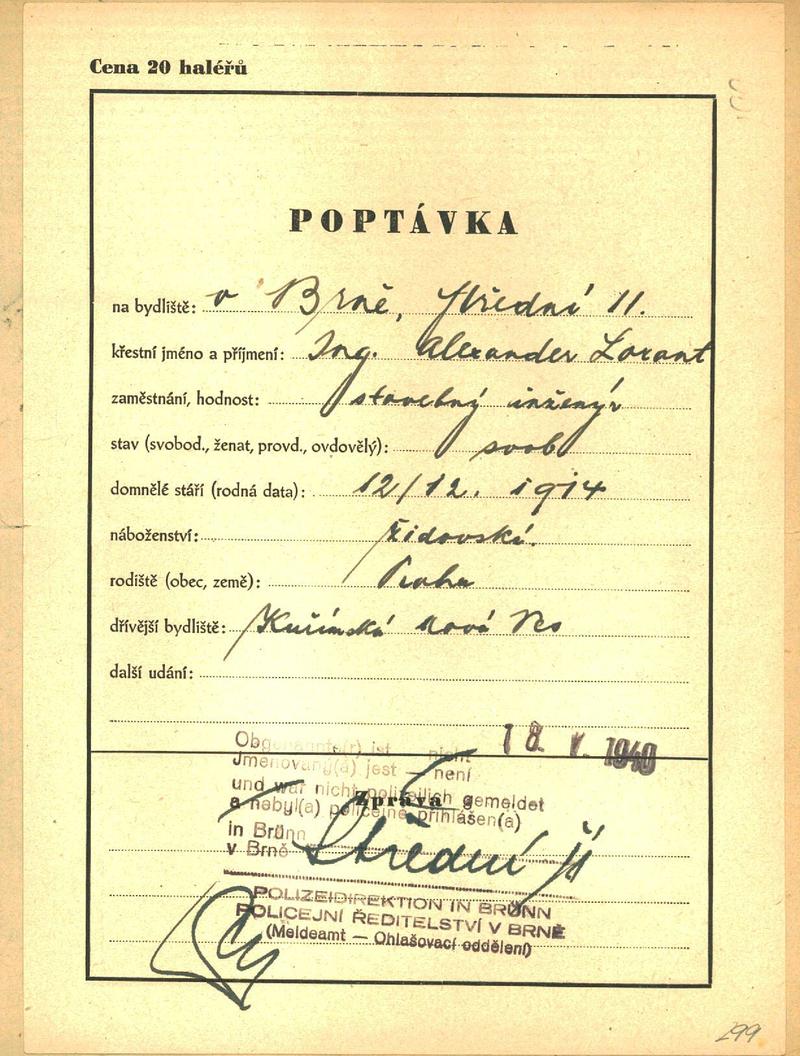 Cena 20 haléřů
POPTÁVKA
na bydliště: v Brně, Střední 11.
křestní jméno a příjmení: Ing. Alexander Lorant
zaměstnání, hodnost: stavebný inženýr
stav (svobod., ženat, provd., ovdovělý): svob
domnělé stáří (rodná data): 12/12. 1914
náboženství: židovské.
rodiště (obec, země): Praha
dřívější bydliště: Kuřimská Nová Ves
další udání:
18. V. 1940
Obgenannte(r) ist — nicht
Jmenovaný(á) jest — není
und war nicht polizeilich gemeldet
Zpráva
a nebyl(a) policejně přihlášen(a)
in Brünn
v Brně Střední 11
POLIZEIDIREKTION IN BRÜNN
POLICEJNÍ ŘEDITELSTVÍ V BRNĚ
(Meldeamt — Ohlašovací oddělení)
299